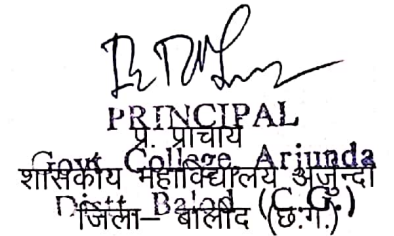 PRINCIPAL
प्र. प्राचार्य
Govt. College Arjunda
शासकीय महाविद्यालय अर्जुन्दा
Distt. Balod (C.G.)
जिला– बालोद (छ.ग.)